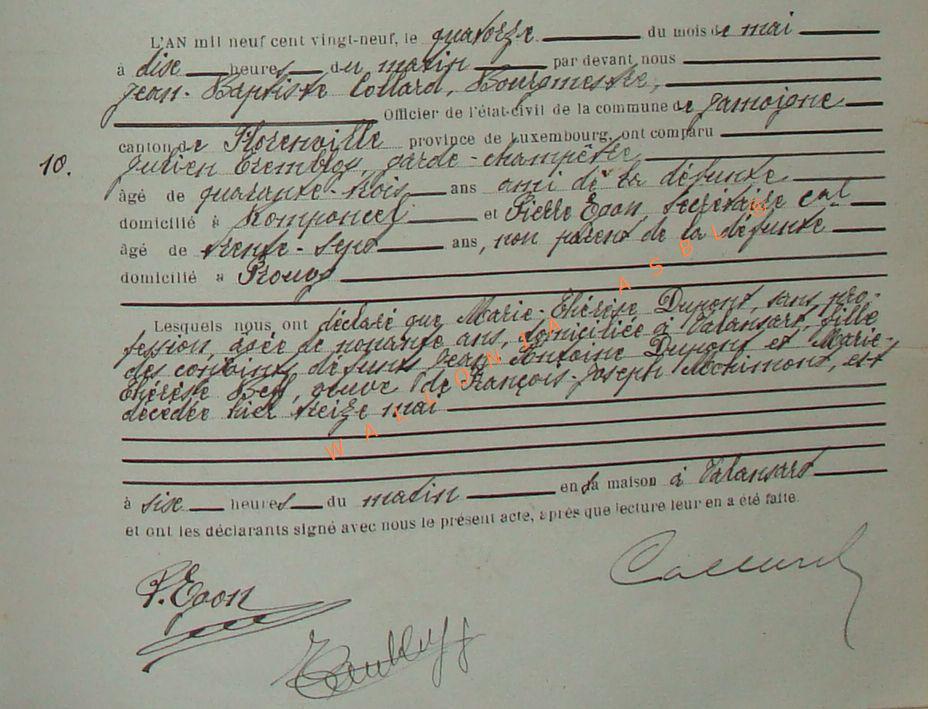 L'AN mil neuf cent vingt-neuf, le quatorze du mois de mai
à dix heures du matin par devant nous
Jean-Baptiste Collard, Bourgmestre,
Officier de l'état-civil de la commune de Jamoigne
canton de Florenville province de Luxembourg, ont comparu
10. Julien Trembloy, garde-champêtre
âgé de quarante-trois ans ami de la défunte
domicilié à Romponcel et Pierre Goon, secrétaire cal
âgé de trente-sept ans, non parent de la défunte
domicilié à Prouvy
Lesquels nous ont déclaré que Marie-Thérèse Dupont, sans pro-
fession, âgée de nonante ans, domiciliée à Valansart, fille
des conjoints défunts Jean Antoine Dupont et Marie-
Thérèse veuve de François-Joseph est
décédée hier treize mai
à six heures du matin en sa maison à Valansart
et ont les déclarants signé avec nous le présent acte, après que lecture leur en a été faite.
Collard
P. Goon
Trembloy
WALLONIA ASBL